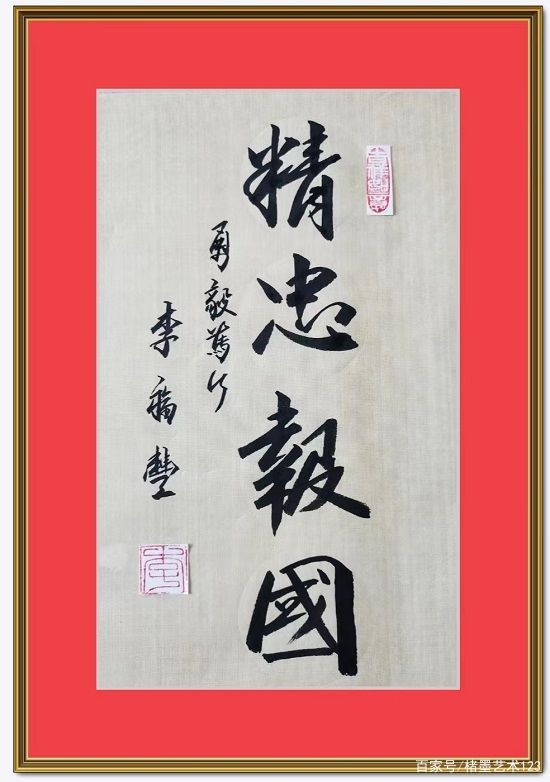 精忠報國
勇毅篤行
李福豐
百家号/楮墨艺术123